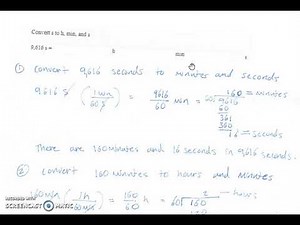 Convert s to h, min, and s
9,616 s = h min s
① Convert 9,616 seconds to minutes and seconds
9,616 s (1 min / 60 s) = 9616/60 min = 160 = minutes
60 9616
60
361
360
16 = seconds
There are 160 minutes and 16 seconds in 9,616 seconds.
② Convert 160 minutes to hours and minutes
160 min (1 h / 60 min) = 160/60 h = 2 - hours
60 160
RECORDED WITH
SCREENCAST MATIC